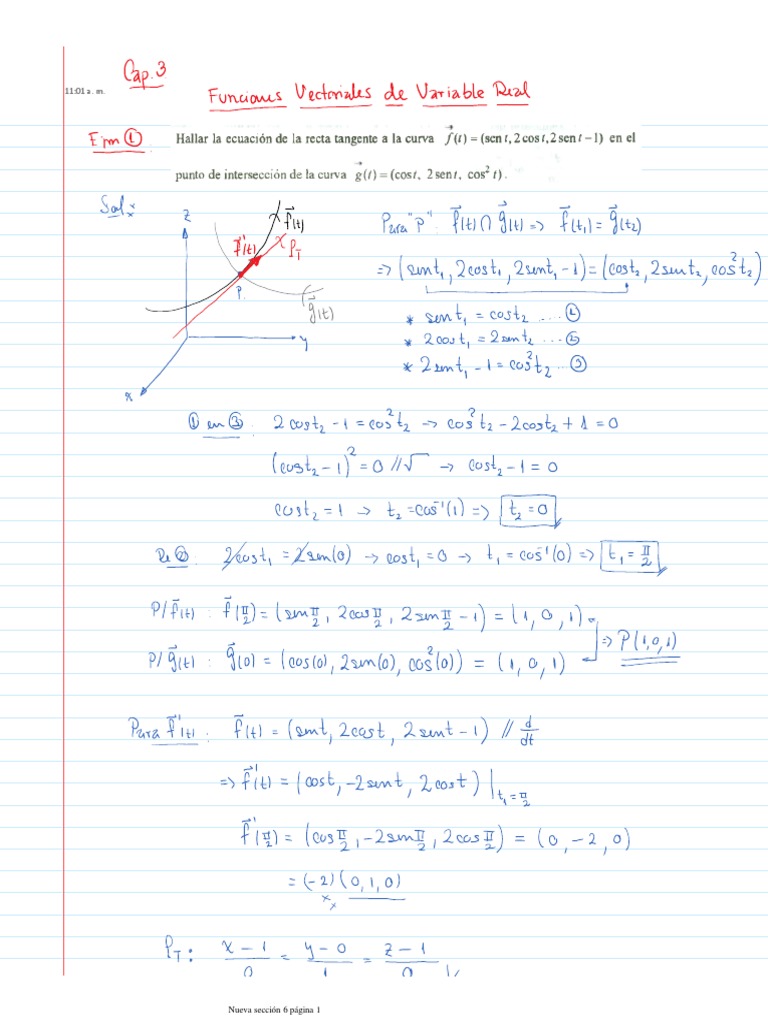 Cap. 3
11:01 a. m.
Funciones Vectoriales de Variable Real
Ejm ① Hallar la ecuación de la recta tangente a la curva f⃗(t) = (sen t, 2 cos t, 2 sen t − 1) en el
punto de intersección de la curva g⃗(t) = (cos t, 2 sen t, cos² t).
Sol:
z
f⃗(t)
f⃗'(t)
P_T
P
g⃗(t)
y
x
Para "P": f⃗(t) ∩ g⃗(t) => f⃗(t₁) = g⃗(t₂)
=> (sent₁, 2cost₁, 2sent₁ - 1) = (cost₂, 2sent₂, cos²t₂)
* sent₁ = cost₂ ... ①
* 2cost₁ = 2sent₂ ... ②
* 2sent₁ - 1 = cos²t₂ ... ③
① en ③: 2cost₂ - 1 = cos²t₂ → cos²t₂ - 2cost₂ + 1 = 0
(cost₂ - 1)² = 0 //√ → cost₂ - 1 = 0
cost₂ = 1 → t₂ = cos⁻¹(1) => t₂ = 0
De ②: 2cost₁ = 2sen(0) → cost₁ = 0 → t₁ = cos⁻¹(0) => t₁ = π/2
P/f⃗(t): f⃗(π/2) = (sen π/2, 2cos π/2, 2sen π/2 - 1) = (1, 0, 1)
=> P(1,0,1)
P/g⃗(t): g⃗(0) = (cos(0), 2sen(0), cos²(0)) = (1, 0, 1)
Para f⃗'(t): f⃗(t) = (sent, 2cost, 2sent - 1) // d/dt
=> f⃗'(t) = (cost, -2sent, 2cost) | t₁ = π/2
f⃗'(π/2) = (cos π/2, -2sen π/2, 2cos π/2) = (0, -2, 0)
= (-2)(0, 1, 0)
P_T: x - 1 / 0 = y - 0 / 1 = z - 1 / 0
Nueva sección 6 página 1